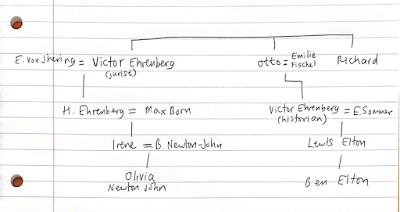 E. von Jhering = Victor Ehrenberg (jurist) Otto = Emilie Fischel Richard
H. Ehrenberg = Max Born Victor Ehrenberg (historian) = E. Sommer
Irene = B. Newton-John Lewis Elton
Olivia Newton John Ben Elton